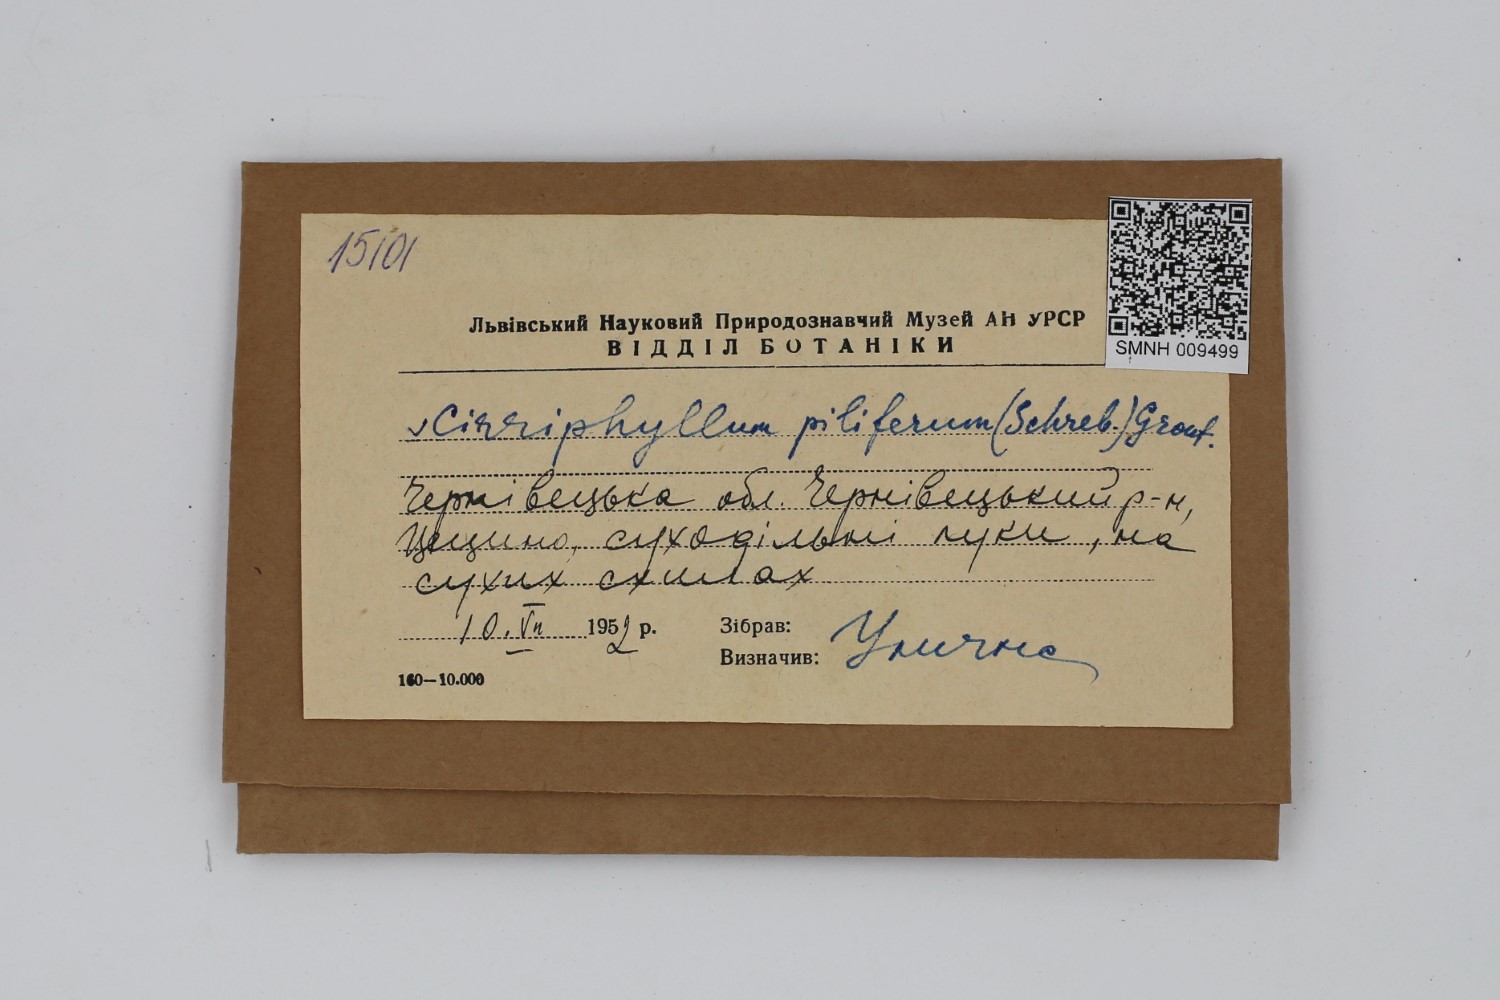 15101
Львівський Науковий Природознавчий Музей АН УРСР
ВІДДІЛ БОТАНІКИ
SMNH 009499
Cirriphyllum piliferum (Schreb.) Grout.
Чернівецька обл. Чернівецький р-н,
Цецино, суходільні луки, на
сухих схилах
10. VII 1952 р.
Зібрав:
Визначив:
160—10.000